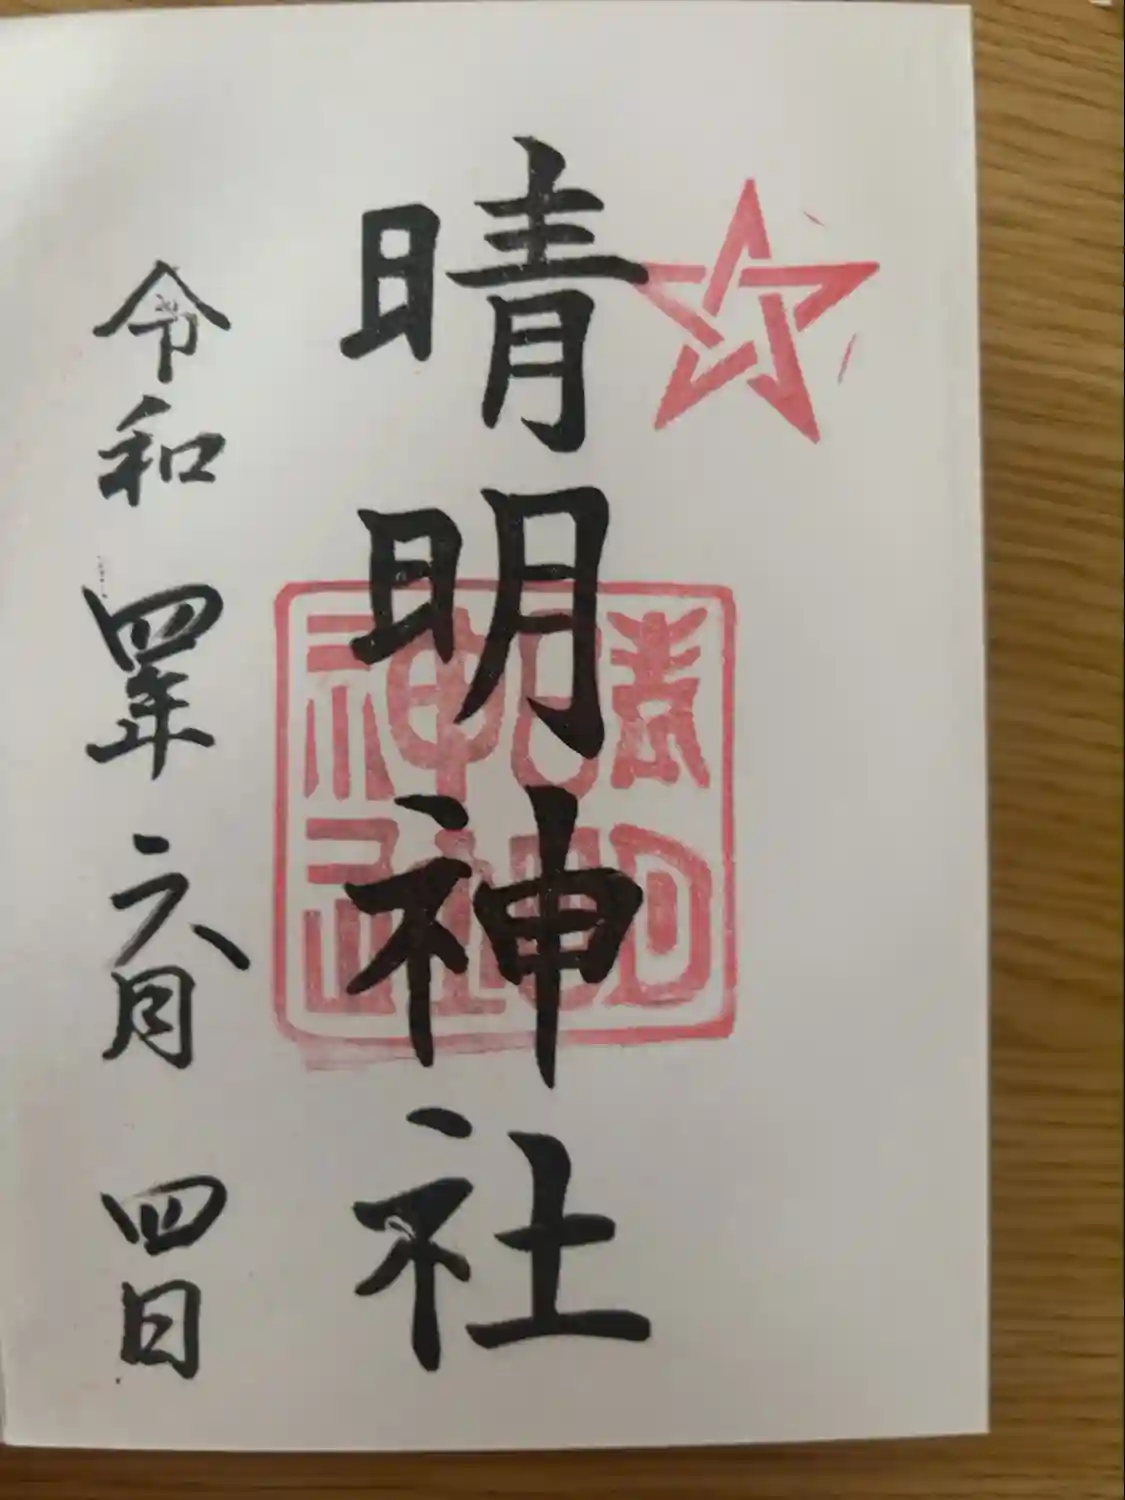 晴明神社
晴明神社
令和四年六月四日